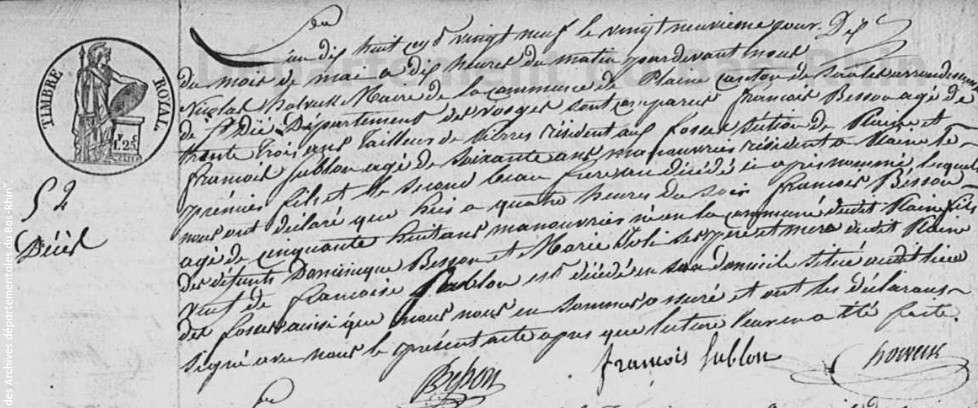 TIMBRE ROYAL
52
Décès
du
L'an dix huit cent vingt neuf le vingt neuvieme jour
du mois de mai a dix heures du matin pardevant nous
Nicolas Maire de la commune de Plaine canton de Saales arrondissem
de St Dié Département des Vosges sont comparus françois Besson agé de
trente trois ans tailleur de pierres résident aux fosses section de Plaine et
françois Sublon agé de soixante ans manouvrier résident a Plaine le
premier fils et le second beau frere du décédé ci apres nommé lesquels
nous ont déclaré que hier a quatre heures du soir françois Besson
agé de cinquante huit ans manouvrier né en la commune dudit Plaine fils
des défunts Dominique Besson et Marie ses pere et mere dudit Plaine
veuf de françoise Sublon est décédé en son domicile situé audit lieu
des fosses ainsi que nous nous en sommes assuré et ont les déclarans
signé avec nous le présent acte apres que lecture leur en a été faite.
Besson françois Sublon
du
des Archives départementales du Bas-Rhin"